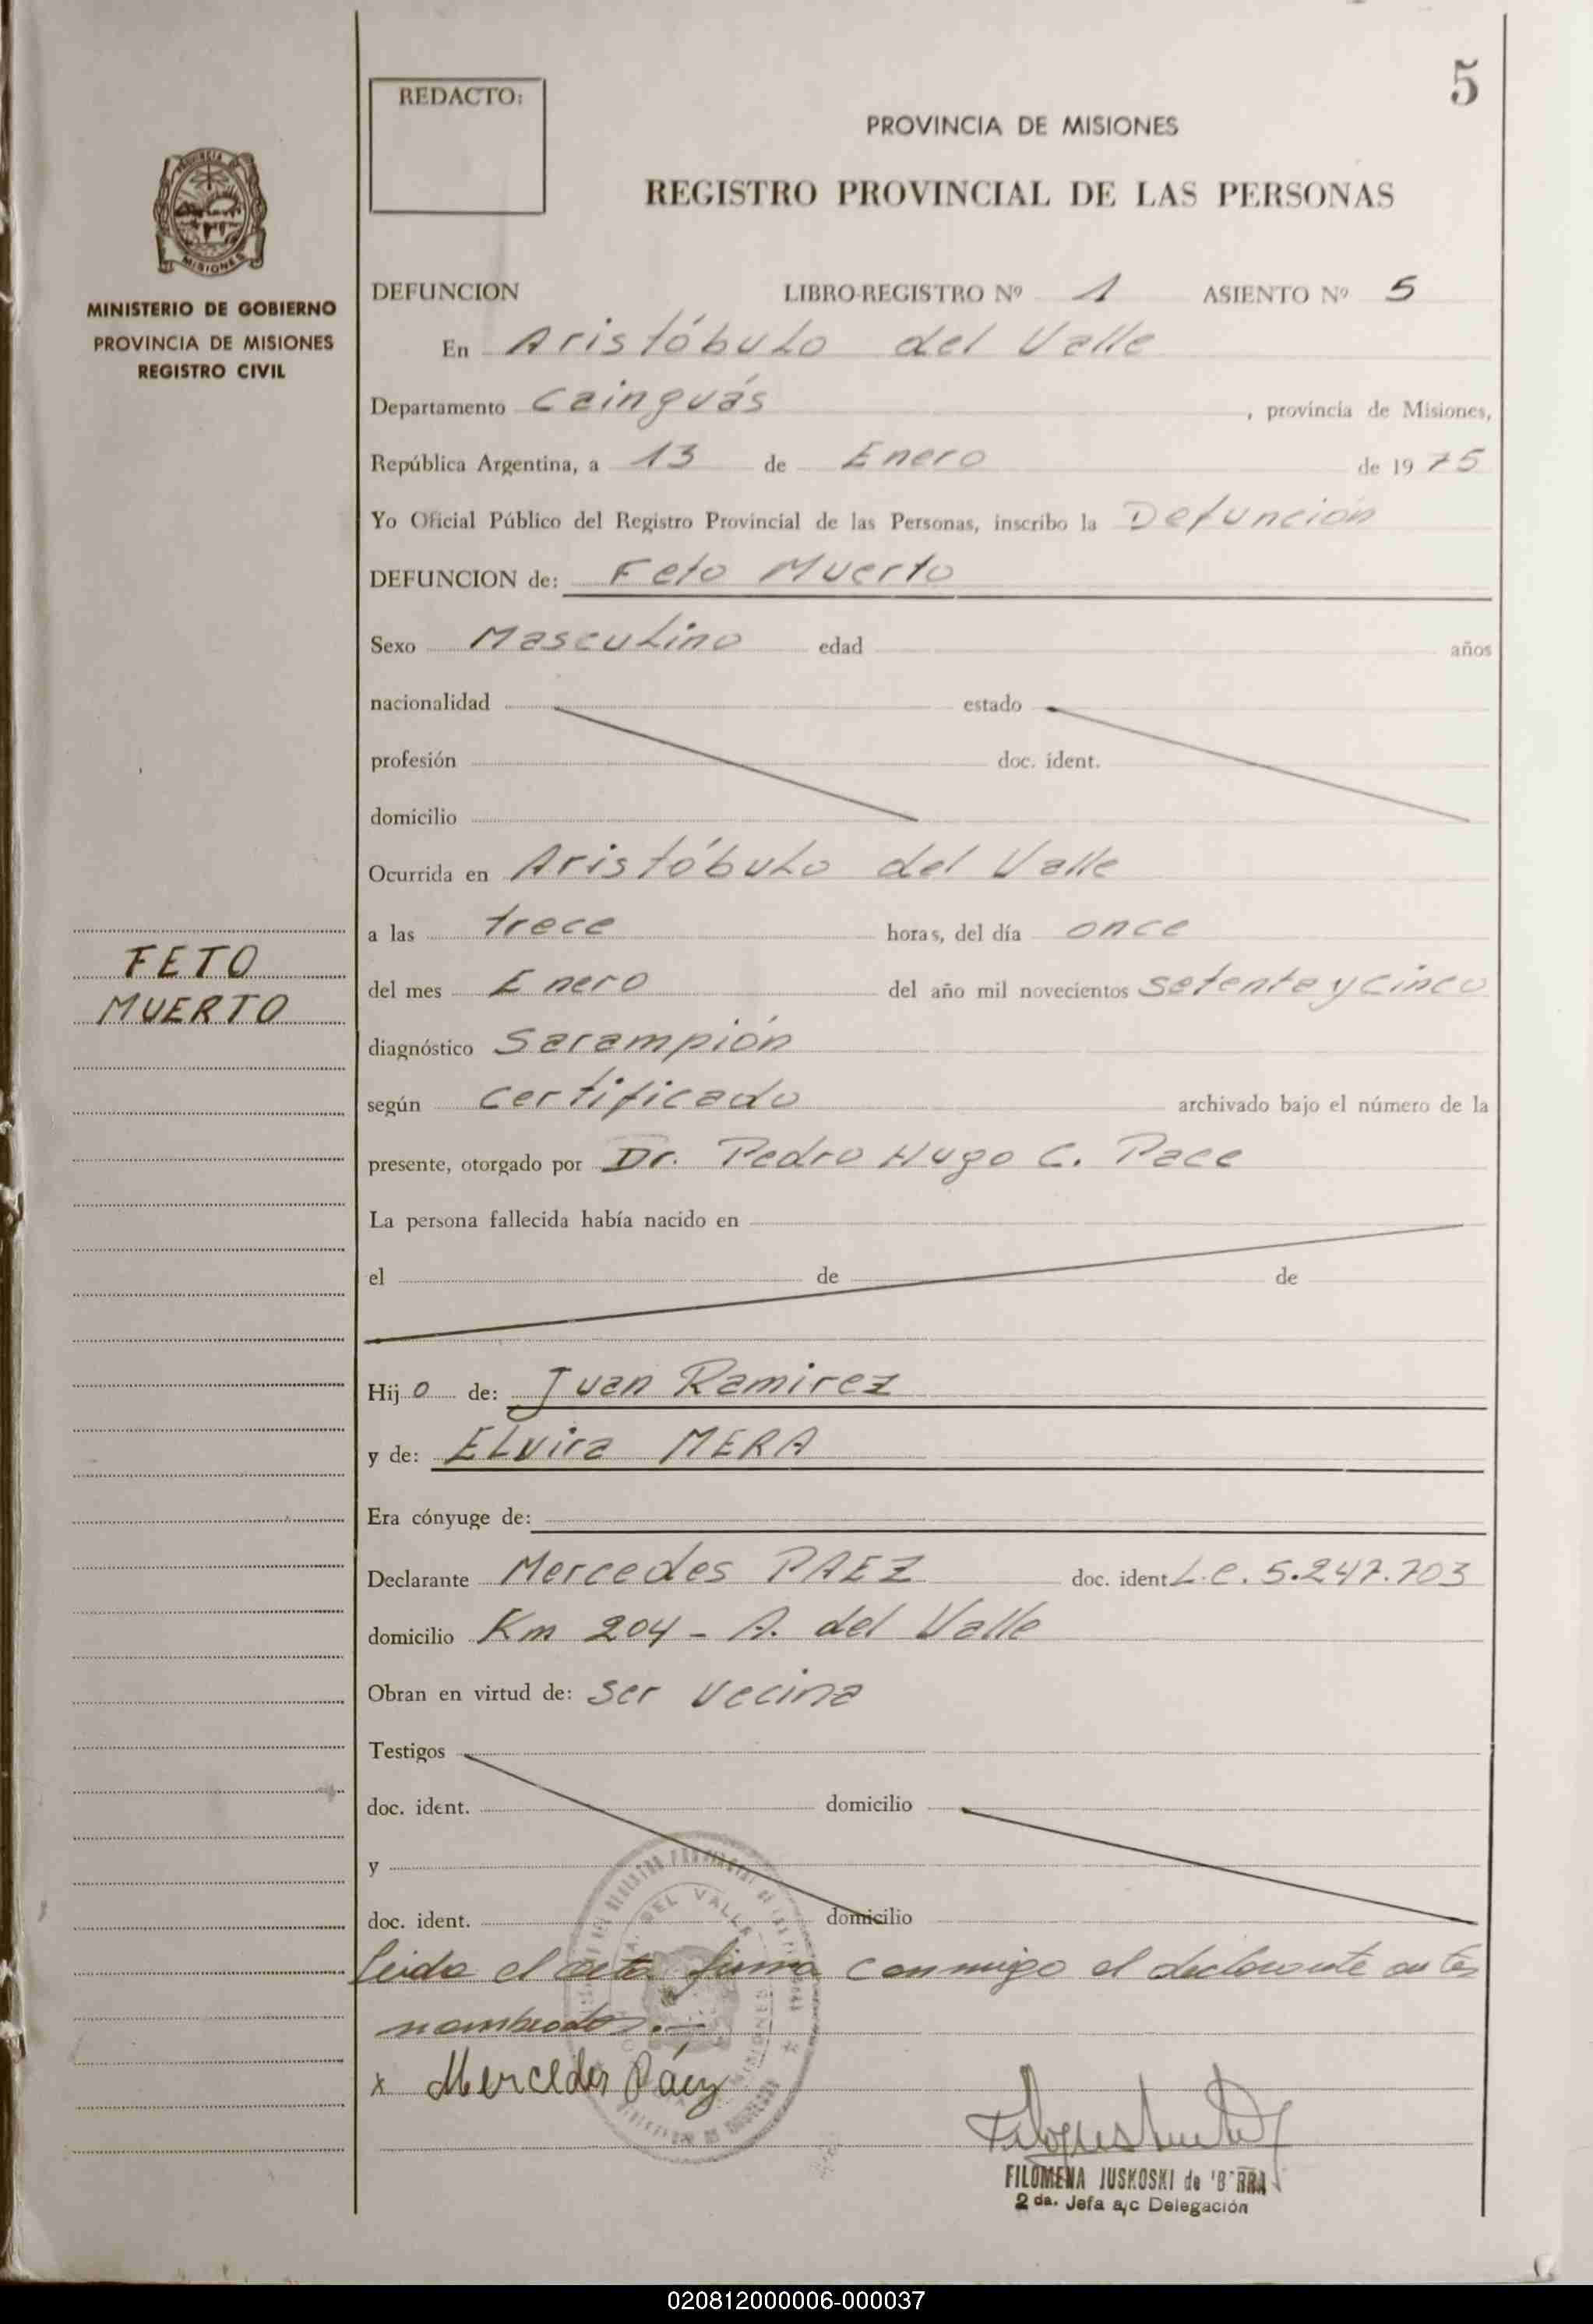 5
REDACTO:
PROVINCIA DE MISIONES
REGISTRO PROVINCIAL DE LAS PERSONAS
MISIONES
MINISTERIO DE GOBIERNO
PROVINCIA DE MISIONES
REGISTRO CIVIL
DEFUNCION LIBRO-REGISTRO Nº 1 ASIENTO Nº 5
En Aristóbulo del Valle
Departamento Cainguás, provincia de Misiones,
República Argentina, a 13 de Enero de 1975
Yo Oficial Público del Registro Provincial de las Personas, inscribo la Defunción
DEFUNCION de: Feto Muerto
Sexo Masculino edad años
nacionalidad estado
profesión doc. ident.
domicilio
Ocurrida en Aristóbulo del Valle
a las trece horas, del día once
FETO
MUERTO
del mes Enero del año mil novecientos setenta y cinco
diagnóstico Sarampión
según certificado archivado bajo el número de la
presente, otorgado por Dr. Pedro Hugo C. Pace
La persona fallecida había nacido en
el de de
Hijo de: Juan Ramirez
y de: ELvira MERA
Era cónyuge de:
Declarante Mercedes PAEZ doc. ident. L.C. 5.247.703
domicilio Km 204 - A. del Valle
Obran en virtud de: ser vecina
Testigos
doc. ident. domicilio
y
doc. ident. domicilio
Leida el acta firma conmigo el declarante antes
nombrado.-
x Mercedes Páez
FILOMENA JUSKOSKI de
2 da. Jefa a/c Delegación
020812000006-000037